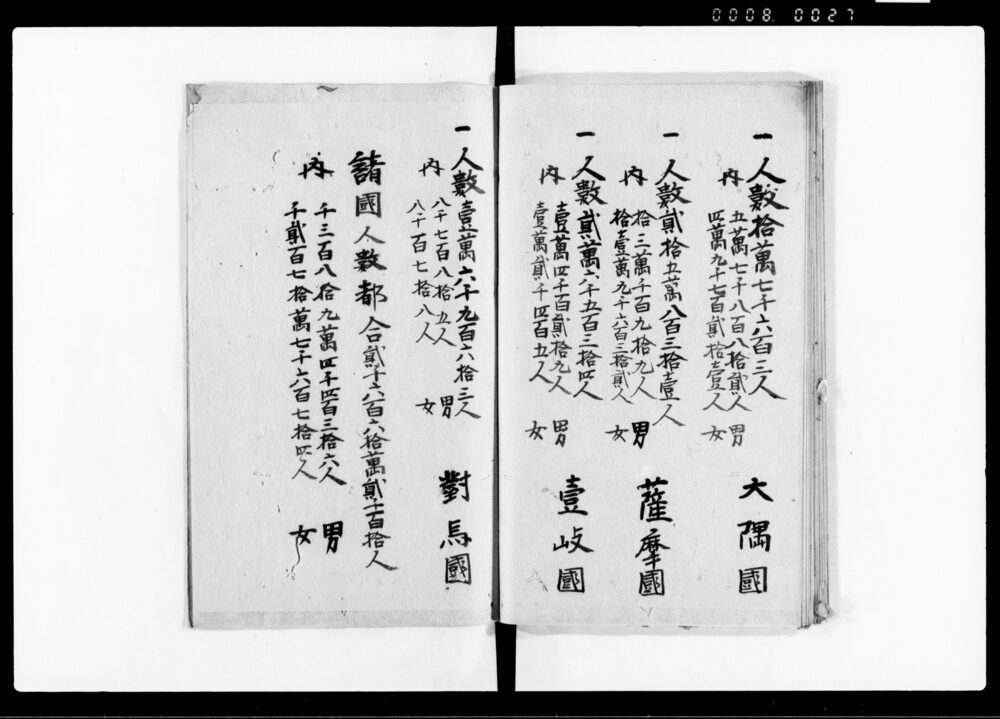 0008 0027
一 人數拾萬七千六百三人 大隅國
内 五萬七千八百八拾貳人 男
四萬九千七百貳拾壹人 女
一 人數貳拾五萬八百三拾壹人 薩摩國
内 拾三萬千百九拾九人 男
拾壹萬九千六百三拾貳人 女
一 人數貳萬六千五百三拾四人 壹岐國
内 壹萬四千百貳拾九人 男
壹萬貳千四百五人 女
一 人數壹萬六千九百六拾三人 對馬國
内 八千七百八拾五人 男
八千百七拾八人 女
諸國人數都合貳千六百六拾萬貳千百拾人
内 千三百八拾九萬四千四百三拾六人 男
千貳百七拾萬七千六百七拾四人 女